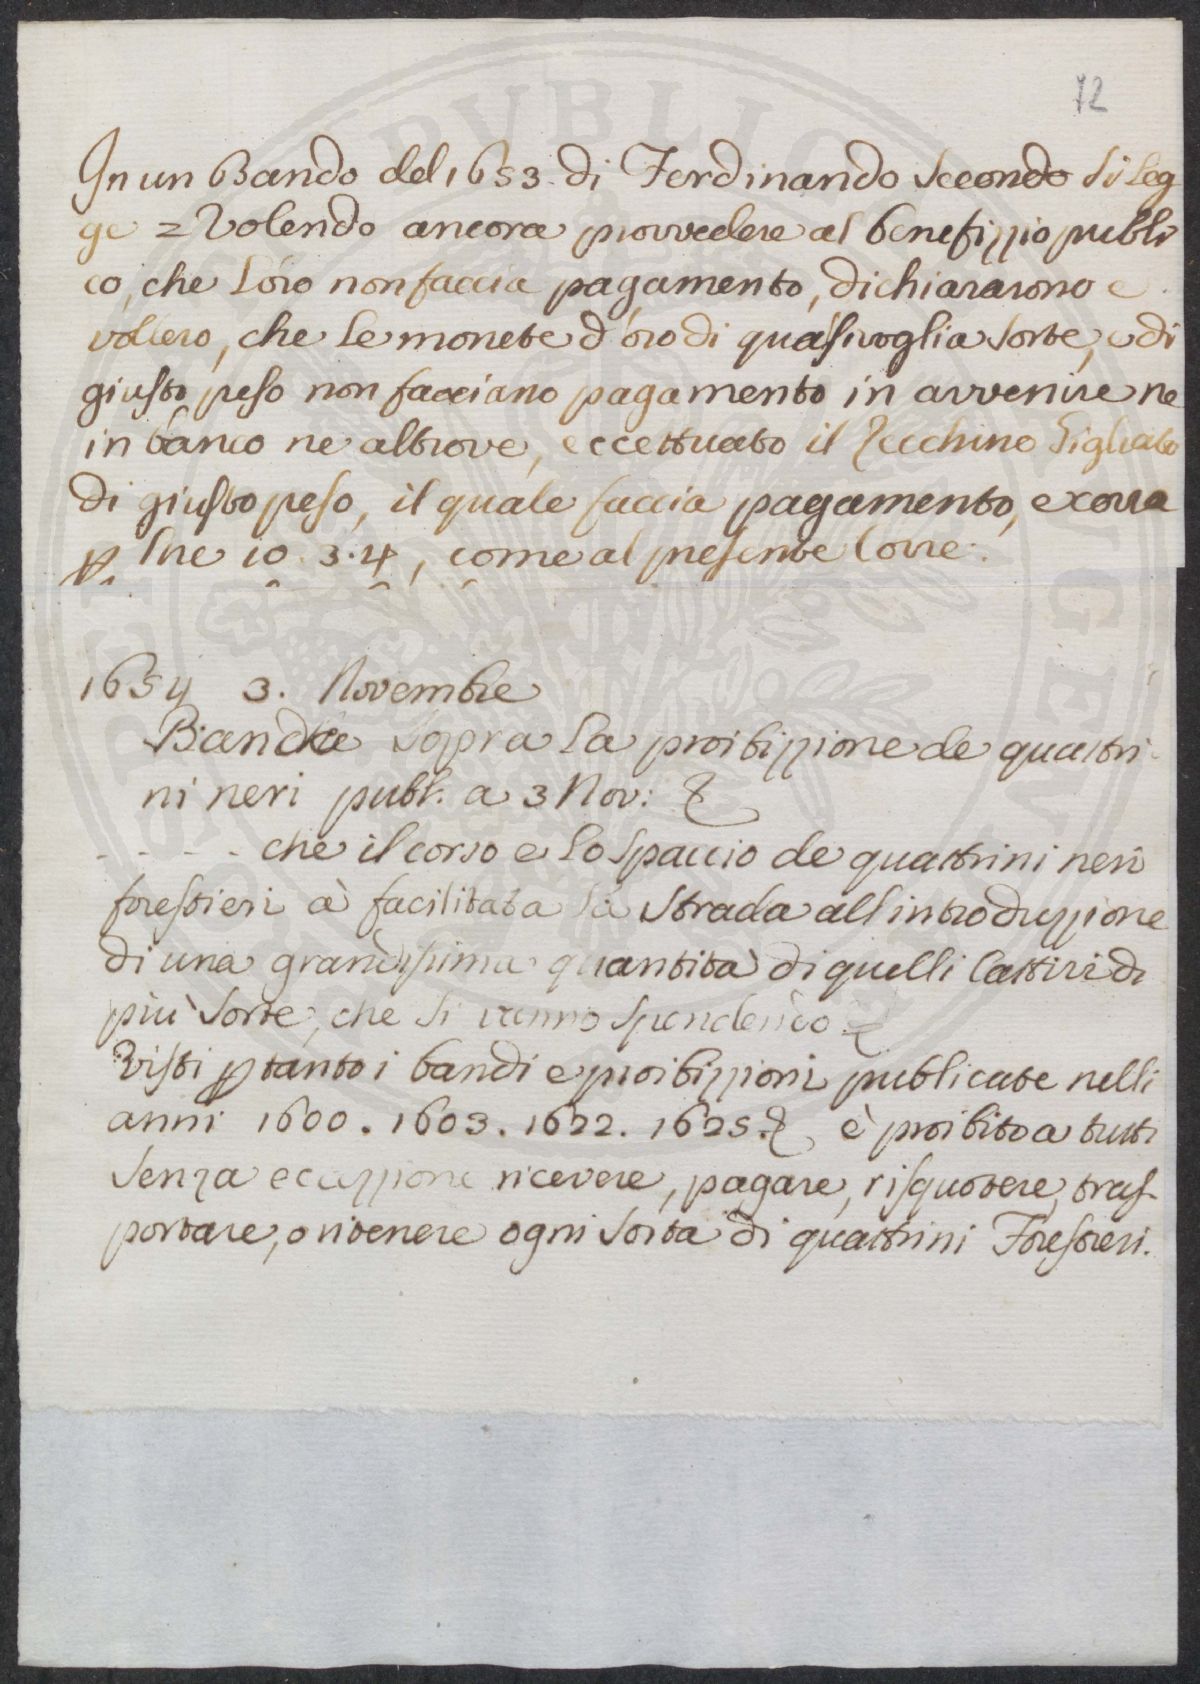 72
In un Bando del 1653. di Ferdinando Secondo si leg
ge = Volendo ancora provvedere al benefizzio publi
co, che l'oro non faccia pagamento, dichiararono e
vollero, che le monete d'oro di qualsivoglia sorte, e di
giusto peso non facciano pagamento in avvenire ne
in banco ne altrove, eccettuato il Zecchino Gigliato
di giusto peso, il quale faccia pagamento, e corra
p. lire 10. 3. 4, come al presente corre.
1654 3. Novembre
Bando sopra la proibizzione de quattri
ni neri publ. a 3 Nov:
- - - - che il corso e lo spaccio de quattrini neri
forestieri à facilitata la strada all'introduzzione
di una grandissima quantità di quelli cattivi di
più sorte, che si vanno spendendo
Visti ptanto i bandi e proibizzioni publicate nelli
anni 1600. 1603. 1622. 1625. è proibito a tutti
senza eccezzione ricevere, pagare, risquotere, tras-
portare, o ritenere ogni sorta di quattrini Forestieri.